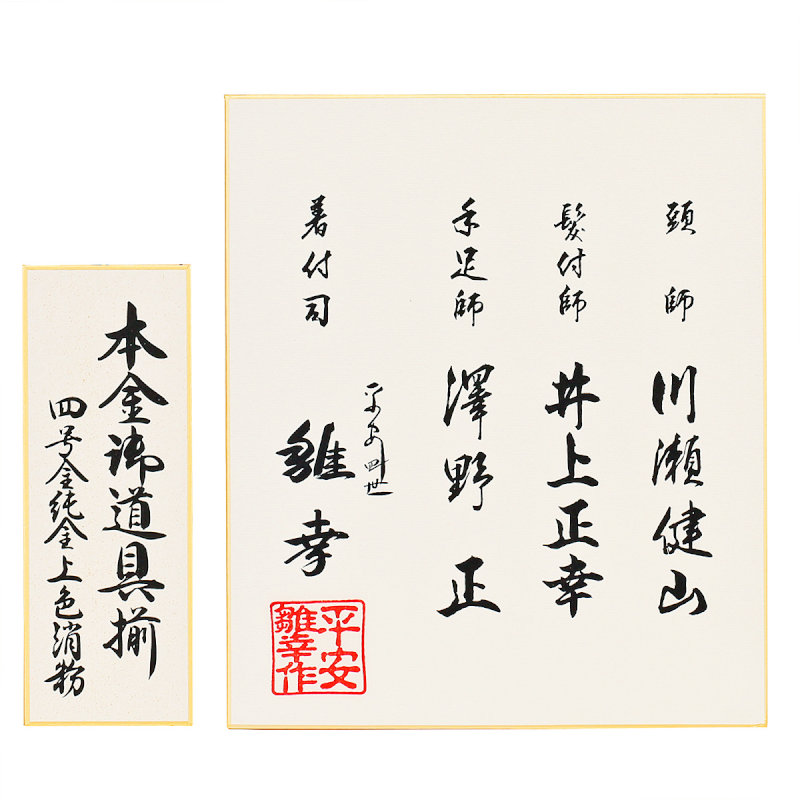 頭師 川瀬健山
髪付師 井上正幸
手足師 澤野正
着付司 平安四世 雛幸
平安
雛幸作
本金御道具揃
四号金純金上色消粉